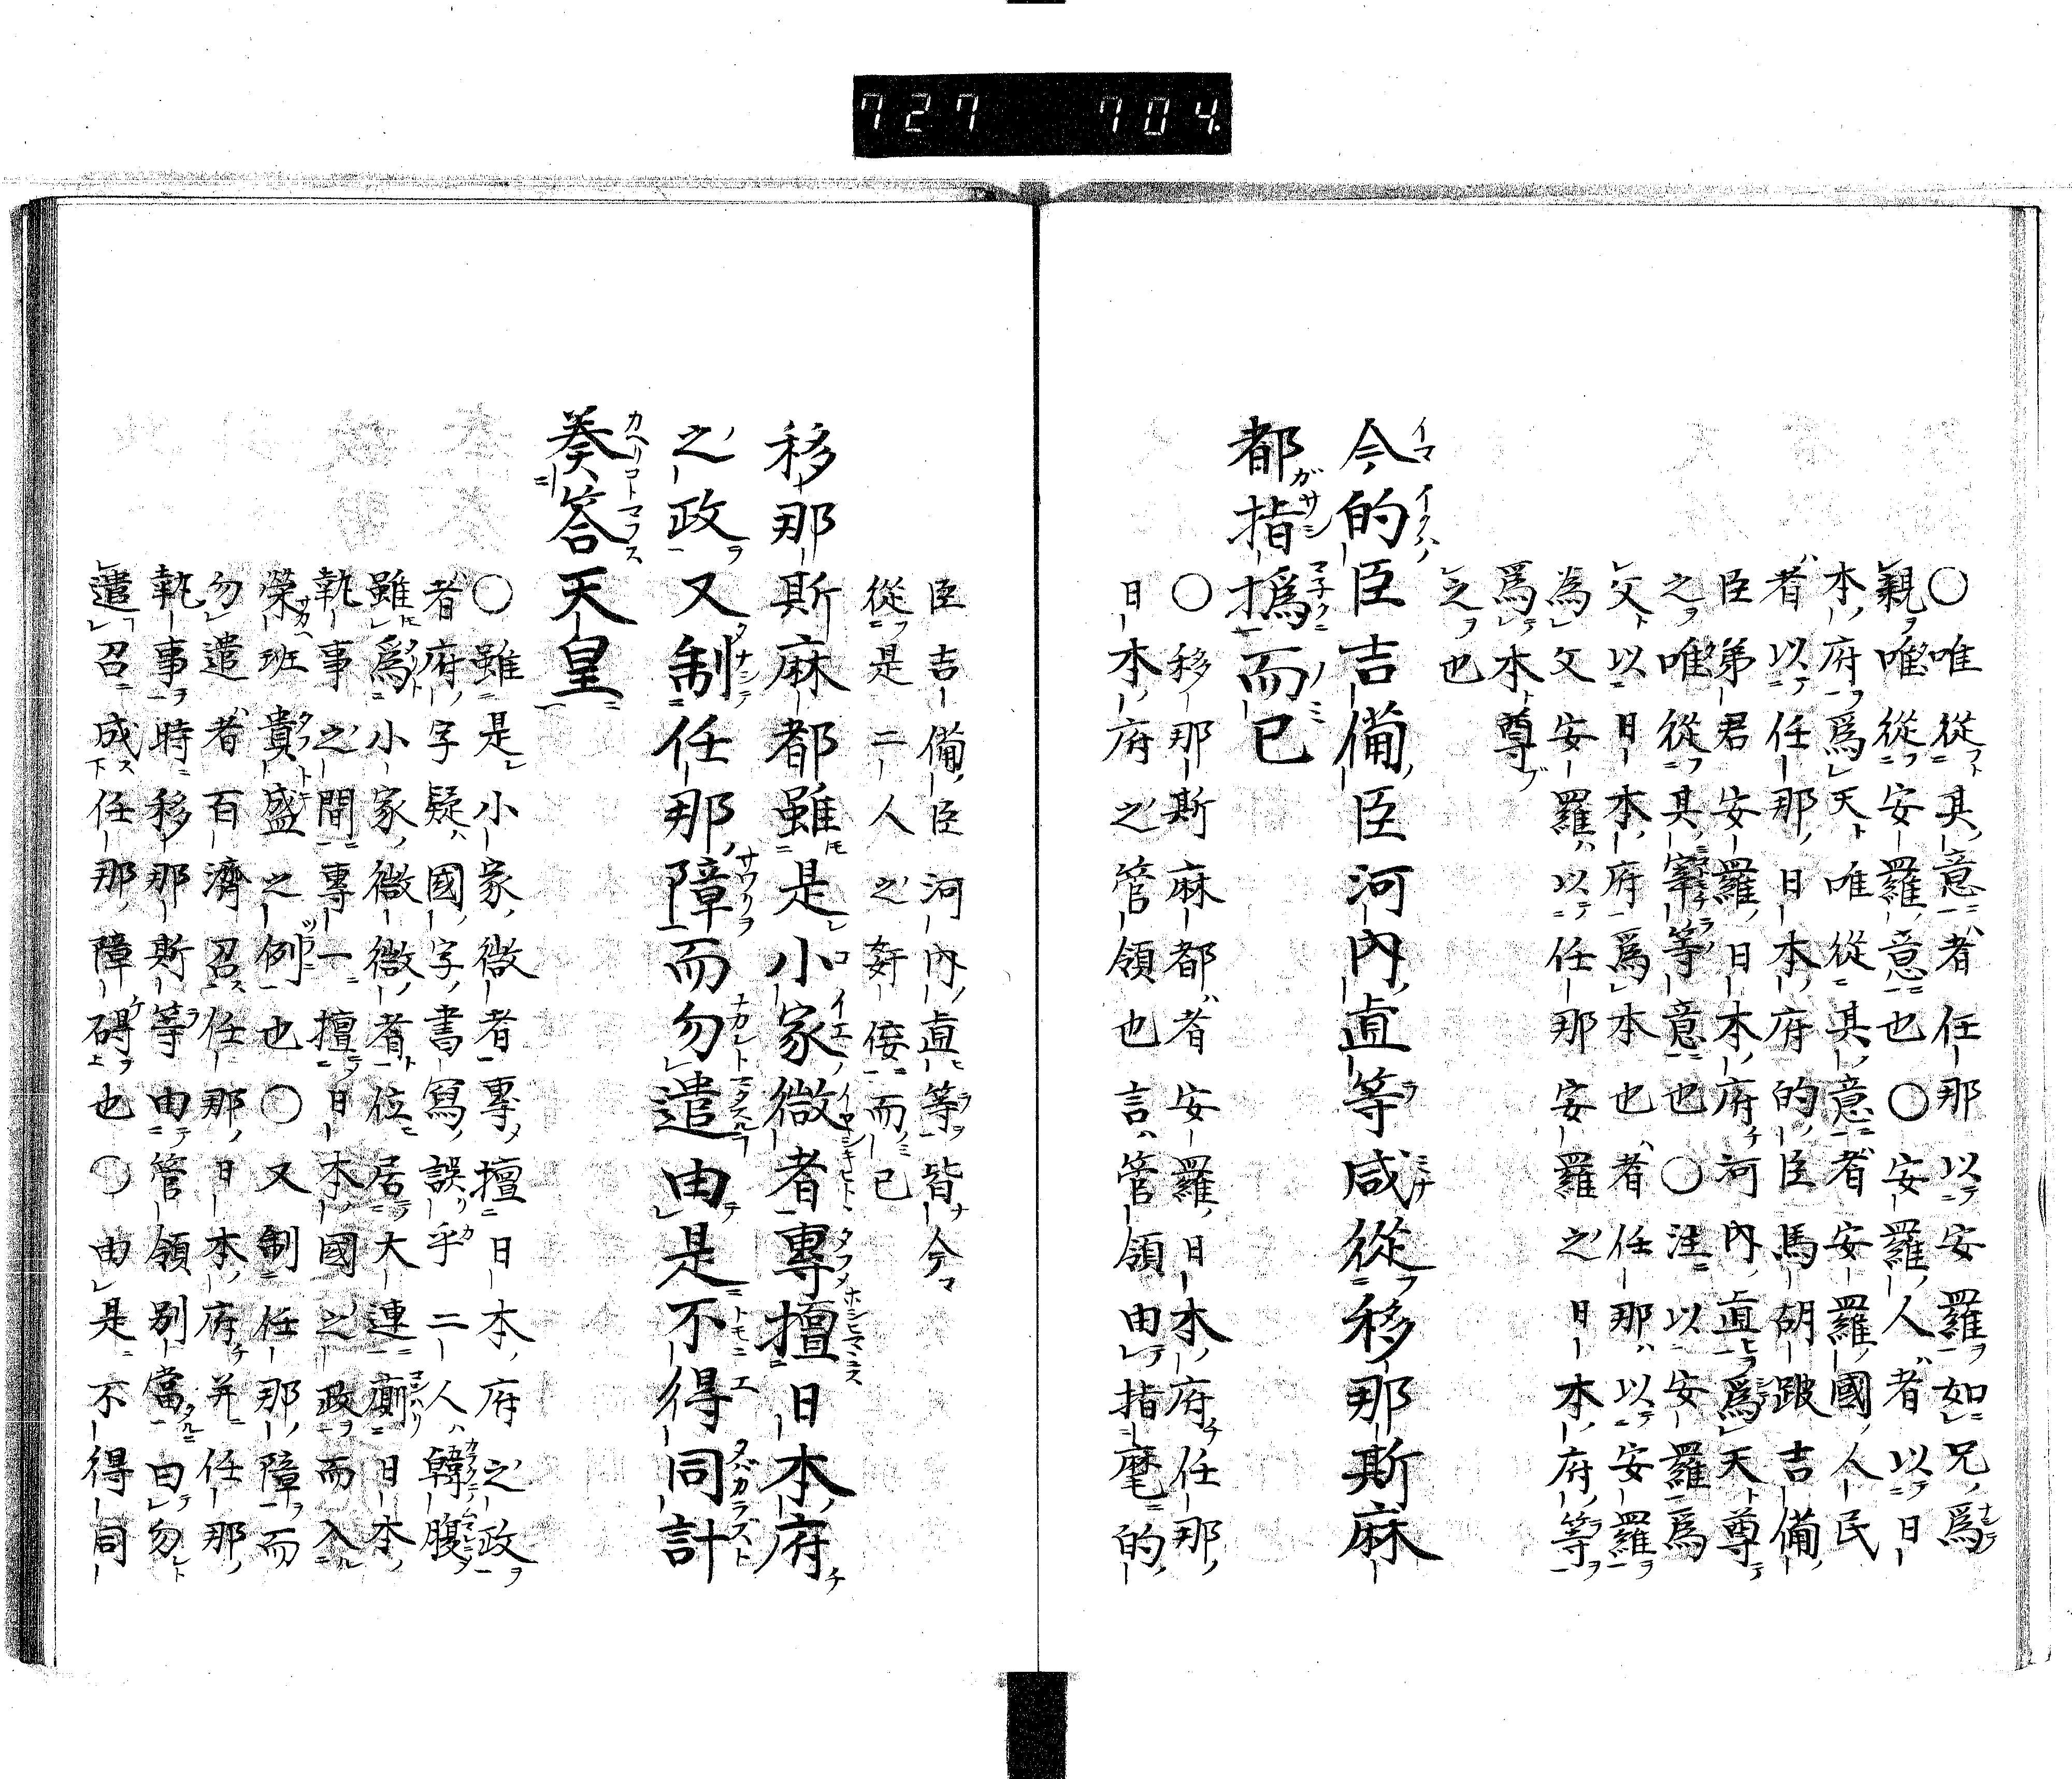 727 704.
〇唯從其意者任那以安羅如兄爲
親唯從安羅意也〇安羅人者以日
本府爲天唯從其意者安羅國人民
者以任那日本府的臣馬胡跛吉備
臣弟君安羅日本府河內直爲天尊
之唯從其宰等意也〇注以安羅爲
父以日本府爲本也者任那以安羅
為父安羅以任那安羅之日本府等
爲本尊
之也
今的臣吉備臣河內直等咸從移那斯麻
都指撝而已
〇移那斯麻都者安羅日本府任那
日本府之管領也言管領由指麾的
臣吉備臣河內直等皆今
從是二人之奸佞而已
移那斯麻都雖是小家微者專擅日本府
之政又制任那障而勿遣由是不得同計
奏答天皇
〇雖是小家微者專擅日本府之政
者府字疑國字書寫誤乎二人韓腹
雖爲小家微微者位居大連廁日本
執事之間專一擅日本國之政而入
榮班貴盛之例也〇又制任那障而
勿遣者百濟召任那日本府并任那
執事時移那斯等由管領別當曰勿
遣召成任那障碍也〇由是不得同